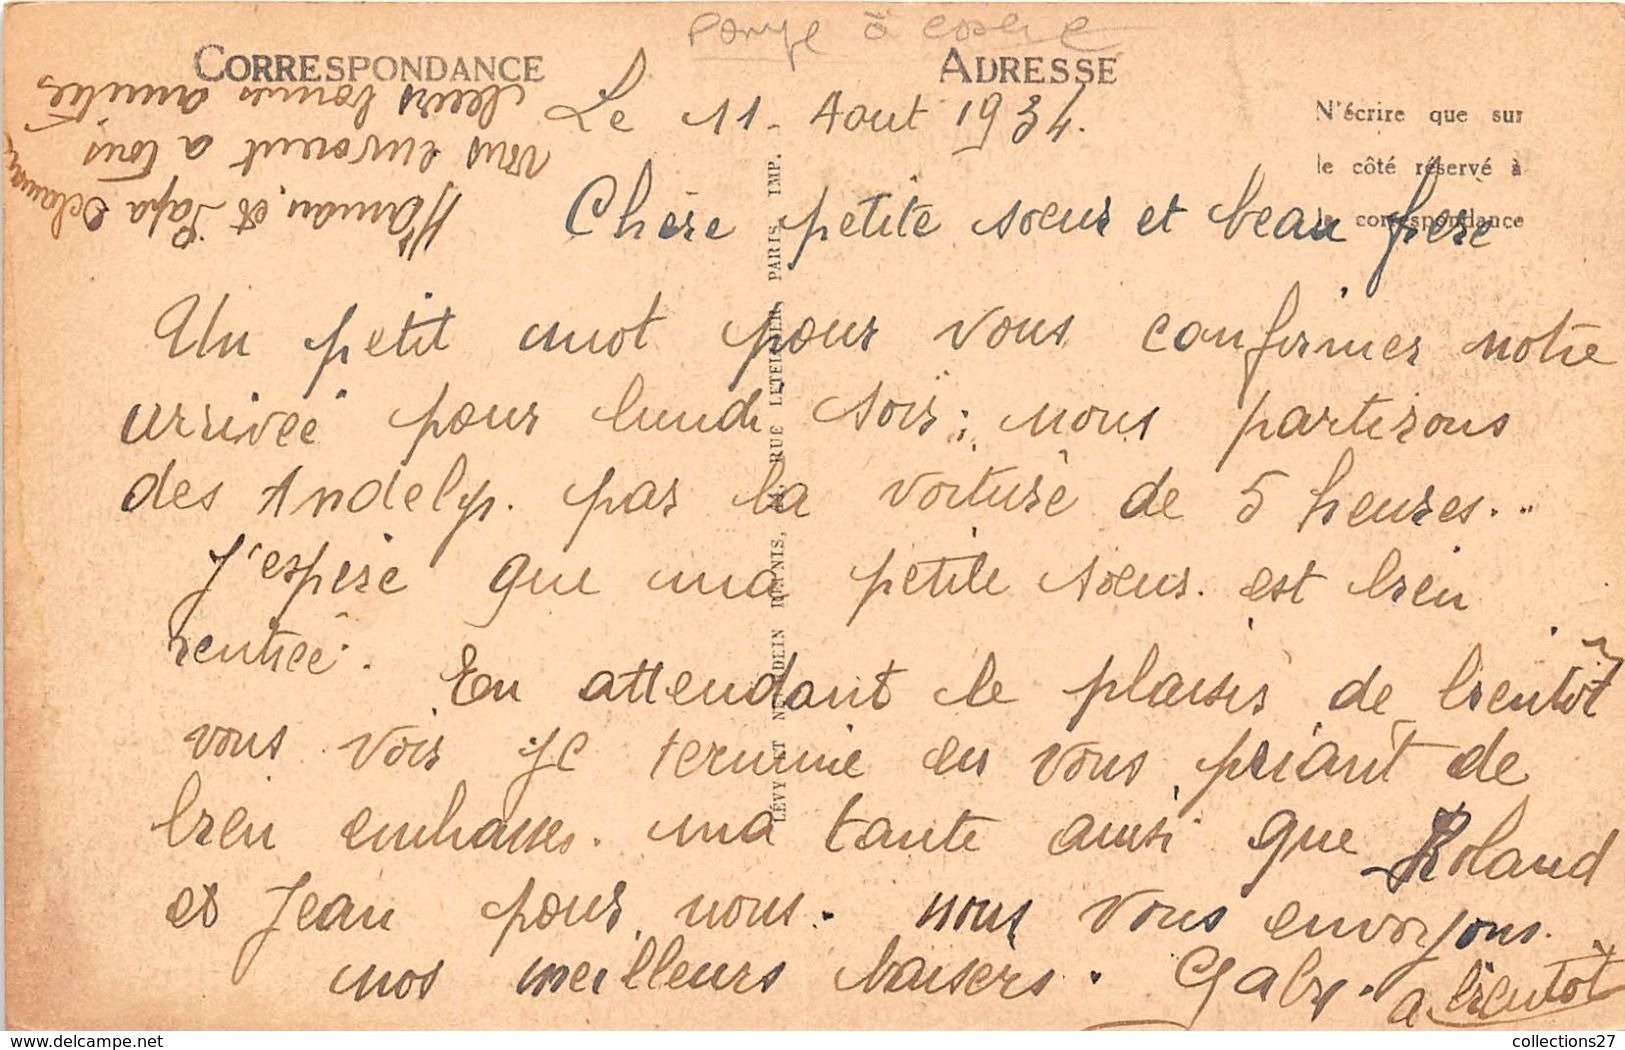 CORRESPONDANCE
ADRESSE
N'écrire que sur
le côté réservé à
la correspondance
Le 11 - Aout 1934.
Chère petite soeur et beau frère
Un petit mot pour vous confirmer notre
arrivée pour lundi soir; nous partirons
des Andelys. par la voiture de 5 heures...
J'espère que ma petite soeur. est bien
rentrée. En attendant le plaisir de bientôt
vous voir je termine en vous priant de
bien embrasser. ma tante ainsi que Roland
et Jean pour nous. nous vous envoyons.
nos meilleurs baisers. Gaby. a bientôt
Maman et Papa
vous envoient a tous
leurs bonnes amitiés
LÉVY ET NEURDEIN RÉUNIS, RUE LETELLIER, PARIS, IMP.
www.delcampe.net
collections27